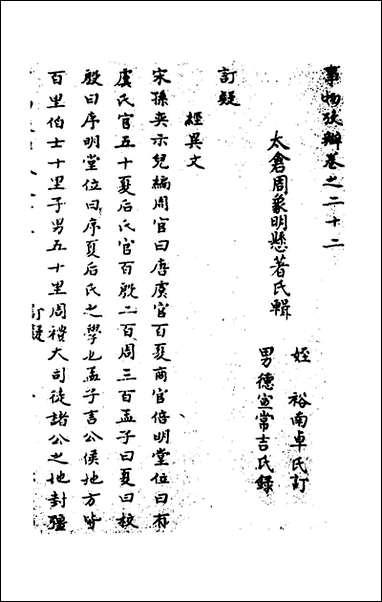 事物考辯卷之二十二
太倉周象明懸著氏輯
姪 裕南卓氏訂
男德宣常吉氏錄
訂疑
經異文
宋孫奕示兒編周官曰唐虞官百夏商官倍明堂位曰有
虞氏官五十夏后氏官百殷二百周三百孟子曰夏曰校
殷曰序明堂位曰序夏后氏之學也孟子言公侯地方皆
百里伯七十里子男五十里周禮大司徒諸公之地封疆
訂疑